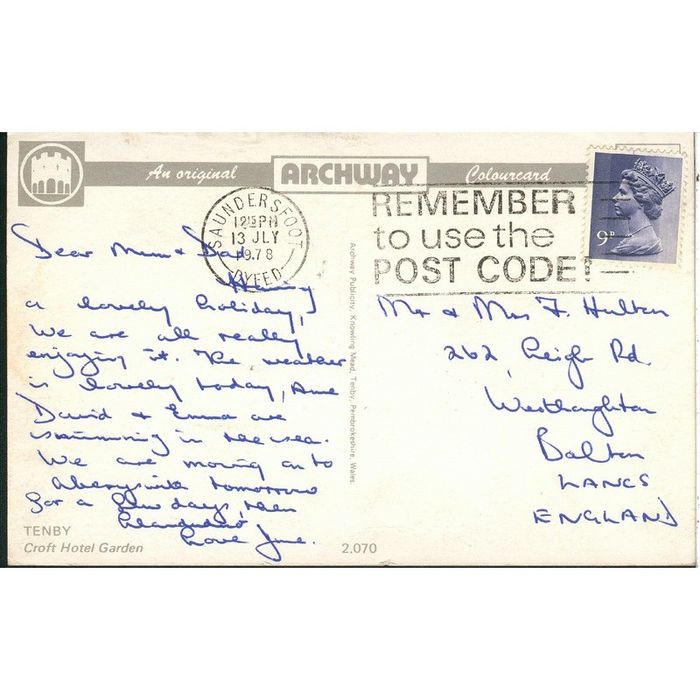 An original ARCHWAY Colourcard
SAUNDERSFOOT
12 15 PM
13 JLY
1978
DYFED
REMEMBER
to use the
POST CODE!
9P
Dear Mum & Dad
Having
a lovely holiday,
We are all really
enjoying it. The weather
is lovely today,
David & Emma are
swimming in the sea.
We are moving on to
Aberyswith tomorrow
for a few days, then
Llandudno
Love June.
Archway Publicity, Knowling Mead, Tenby, Pembrokeshire, Wales.
Mr & Mrs F. Hulton
262, Leigh Rd.
Westhoughton
Bolton
LANCS
ENGLAND
TENBY
Croft Hotel Garden
2.070